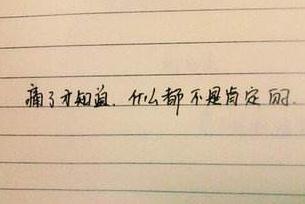 痛了才知道，什么都不是肯定的.